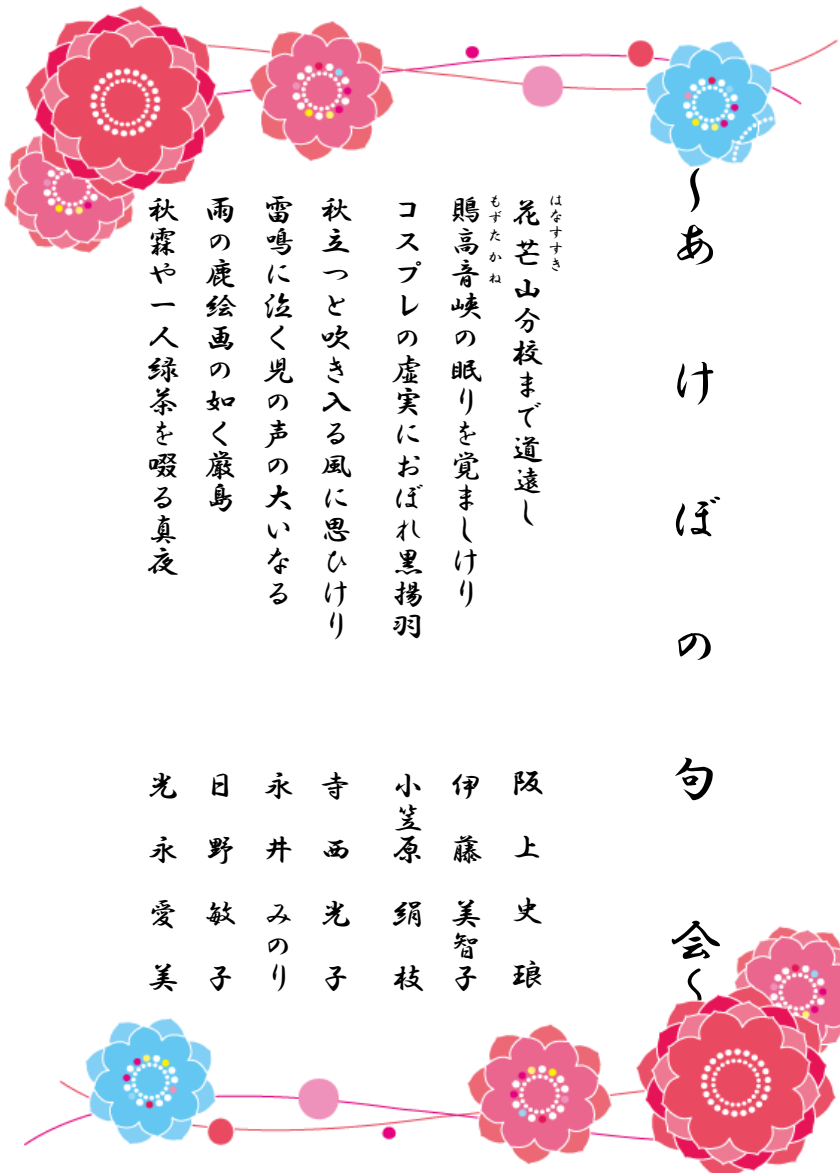 ～あけぼの句会～
はなすすき
花芒山分校まで道遠し
阪上史琅
もずたかね
鵙高音峡の眠りを覚ましけり
伊藤美智子
コスプレの虚実におぼれ黒揚羽
小笠原絹枝
秋立つと吹き入る風に思ひけり
寺西光子
雷鳴に泣く児の声の大いなる
永井みのり
雨の鹿絵画の如く厳島
日野敏子
秋霖や一人緑茶を啜る真夜
光永愛美